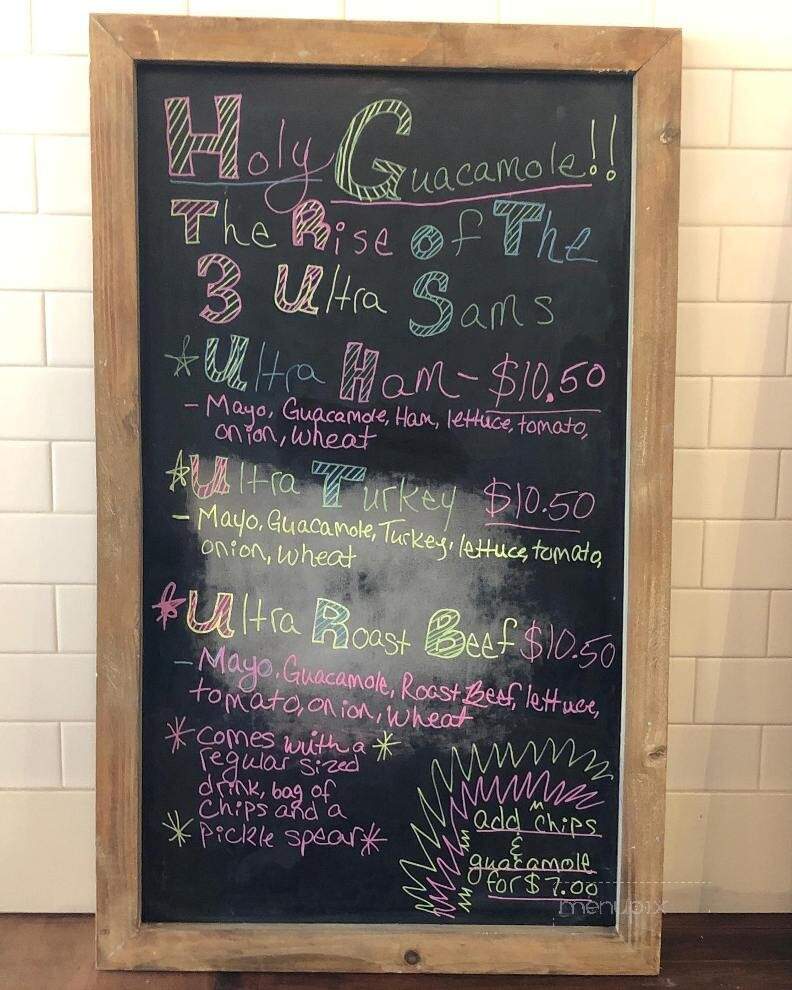 Holy Guacamole!!
The Rise of The
3 Ultra Sams
*Ultra Ham - $10.50
- Mayo, Guacamole, Ham, lettuce, tomato,
onion, wheat
*Ultra Turkey $10.50
- Mayo, Guacamole, Turkey, lettuce, tomato,
onion, wheat
*Ultra Roast Beef $10.50
- Mayo, Guacamole, Roast Beef, lettuce,
tomato, onion, wheat
* comes with a *
regular sized
drink, bag of
chips and a
* pickle spear *
add chips
&
guacamole
for $7.00
menupix